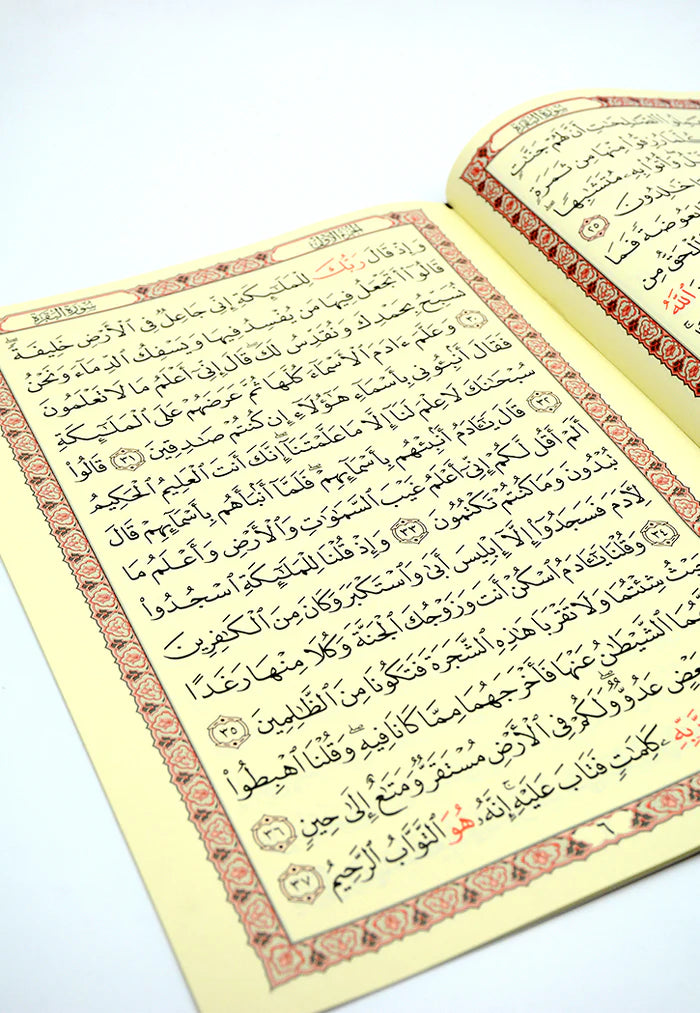 سُورَةُ البَقَرَةِ
ٱلصَّـٰلِحَـٰتِ أَنَّ لَهُمْ جَنَّـٰتٍ
كُلَّمَا رُزِقُوا۟ مِنْهَا مِن ثَمَرَةٍ
وَأُتُوا۟ بِهِۦ مُتَشَـٰبِهًا ۖ
خَـٰلِدُونَ ٢٥
بَعُوضَةً فَمَا
ٱلْحَقُّ مِن
ٱللَّهُ
الجزء الأول
سُورَةُ البَقَرَةِ
وَإِذْ قَالَ رَبُّكَ لِلْمَلَـٰٓئِكَةِ إِنِّى جَاعِلٌ فِى ٱلْأَرْضِ خَلِيفَةً ۖ
قَالُوٓا۟ أَتَجْعَلُ فِيهَا مَن يُفْسِدُ فِيهَا وَيَسْفِكُ ٱلدِّمَآءَ وَنَحْنُ
نُسَبِّحُ بِحَمْدِكَ وَنُقَدِّسُ لَكَ ۖ قَالَ إِنِّىٓ أَعْلَمُ مَا لَا تَعْلَمُونَ
٣٠ وَعَلَّمَ ءَادَمَ ٱلْأَسْمَآءَ كُلَّهَا ثُمَّ عَرَضَهُمْ عَلَى ٱلْمَلَـٰٓئِكَةِ
فَقَالَ أَنۢبِـُٔونِى بِأَسْمَآءِ هَـٰٓؤُلَآءِ إِن كُنتُمْ صَـٰدِقِينَ ٣١ قَالُوا۟
سُبْحَـٰنَكَ لَا عِلْمَ لَنَآ إِلَّا مَا عَلَّمْتَنَآ ۖ إِنَّكَ أَنتَ ٱلْعَلِيمُ ٱلْحَكِيمُ
٣٢ قَالَ يَـٰٓـَٔادَمُ أَنۢبِئْهُم بِأَسْمَآئِهِمْ ۖ فَلَمَّآ أَنۢبَأَهُم بِأَسْمَآئِهِمْ قَالَ
أَلَمْ أَقُل لَّكُمْ إِنِّىٓ أَعْلَمُ غَيْبَ ٱلسَّمَـٰوَٰتِ وَٱلْأَرْضِ وَأَعْلَمُ مَا
تُبْدُونَ وَمَا كُنتُمْ تَكْتُمُونَ ٣٣ وَإِذْ قُلْنَا لِلْمَلَـٰٓئِكَةِ ٱسْجُدُوا۟
لِـَٔادَمَ فَسَجَدُوٓا۟ إِلَّآ إِبْلِيسَ أَبَىٰ وَٱسْتَكْبَرَ وَكَانَ مِنَ ٱلْكَـٰفِرِينَ
٣٤ وَقُلْنَا يَـٰٓـَٔادَمُ ٱسْكُنْ أَنتَ وَزَوْجُكَ ٱلْجَنَّةَ وَكُلَا مِنْهَا رَغَدًا
شِئْتُمَا وَلَا تَقْرَبَا هَـٰذِهِ ٱلشَّجَرَةَ فَتَكُونَا مِنَ ٱلظَّـٰلِمِينَ ٣٥
ٱلشَّيْطَـٰنُ عَنْهَا فَأَخْرَجَهُمَا مِمَّا كَانَا فِيهِ ۖ وَقُلْنَا ٱهْبِطُوا۟
عَدُوٌّ ۖ وَلَكُمْ فِى ٱلْأَرْضِ مُسْتَقَرٌّ وَمَتَـٰعٌ إِلَىٰ حِينٍ ٣٦
كَلِمَـٰتٍ فَتَابَ عَلَيْهِ ۚ إِنَّهُۥ هُوَ ٱلتَّوَّابُ ٱلرَّحِيمُ ٣٧
٦